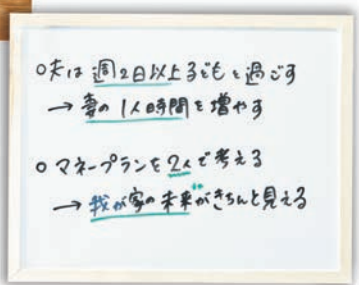 ○夫は週2日以上子どもと過ごす
→妻の1人時間を増やす
○マネープランを2人で考える
→我が家の未来がきちんと見える